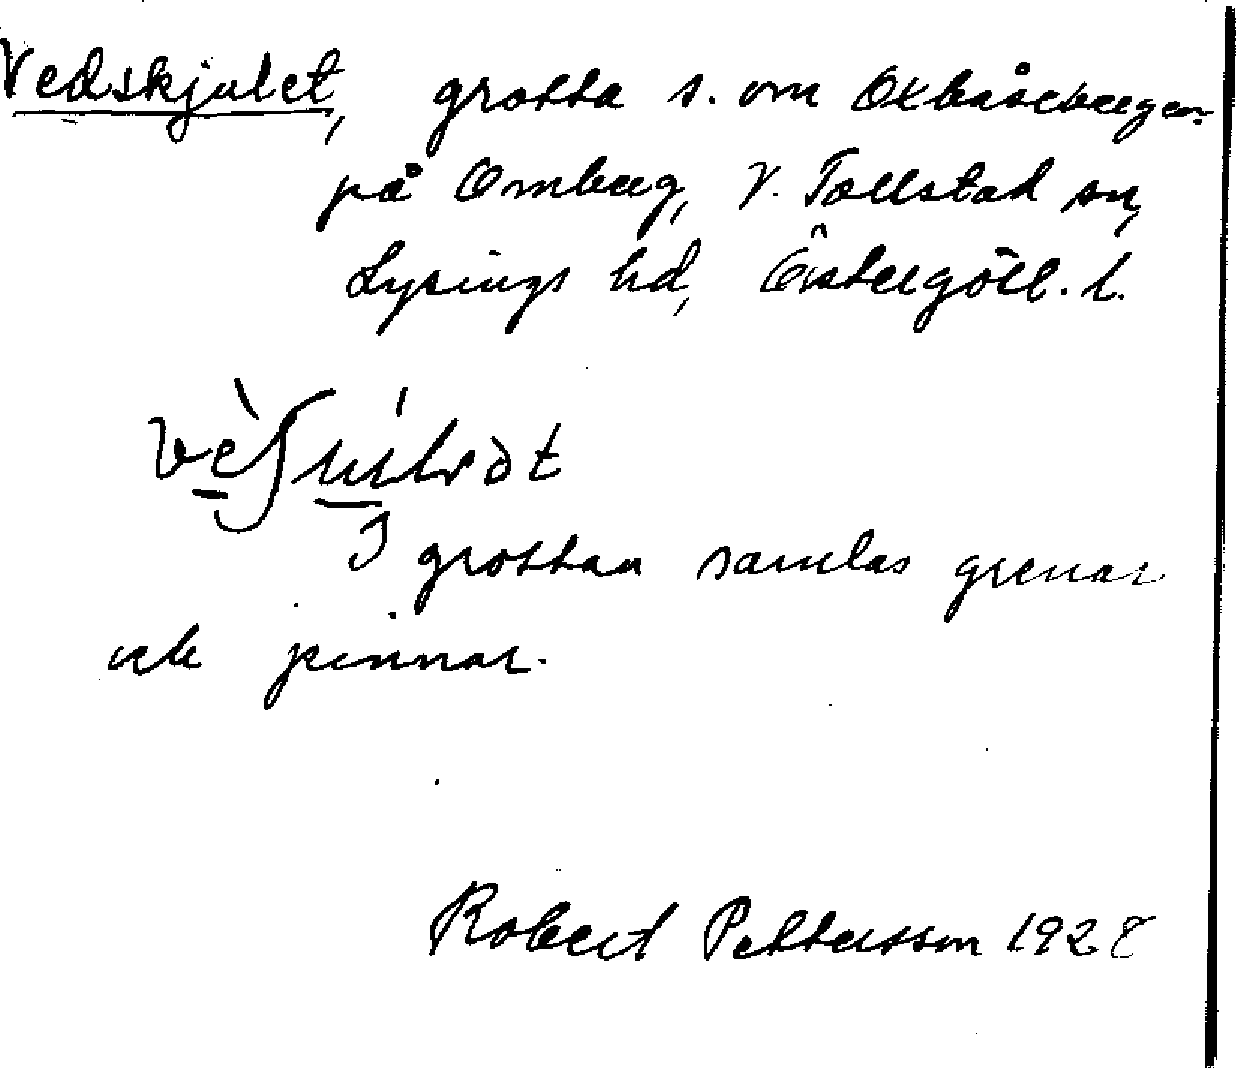 Vedskjulet, grotta s. om Oxbåsebergen
på Omberg, V. Tollstad sn,
Lysings hd, Östergötl. l.
I grottan samlas grenar
och pinnar.
Robert Pettersson 1928